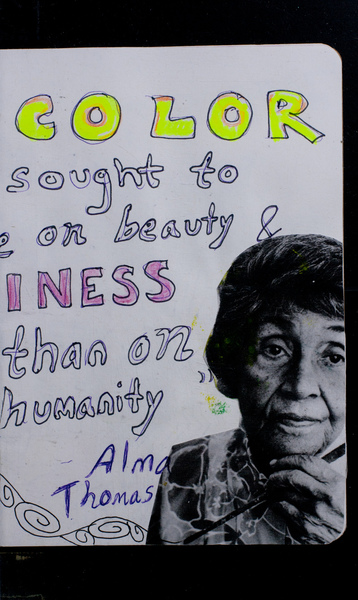 COLOR
sought to
e on beauty &
INESS
than on
humanity"
- Alma
Thomas